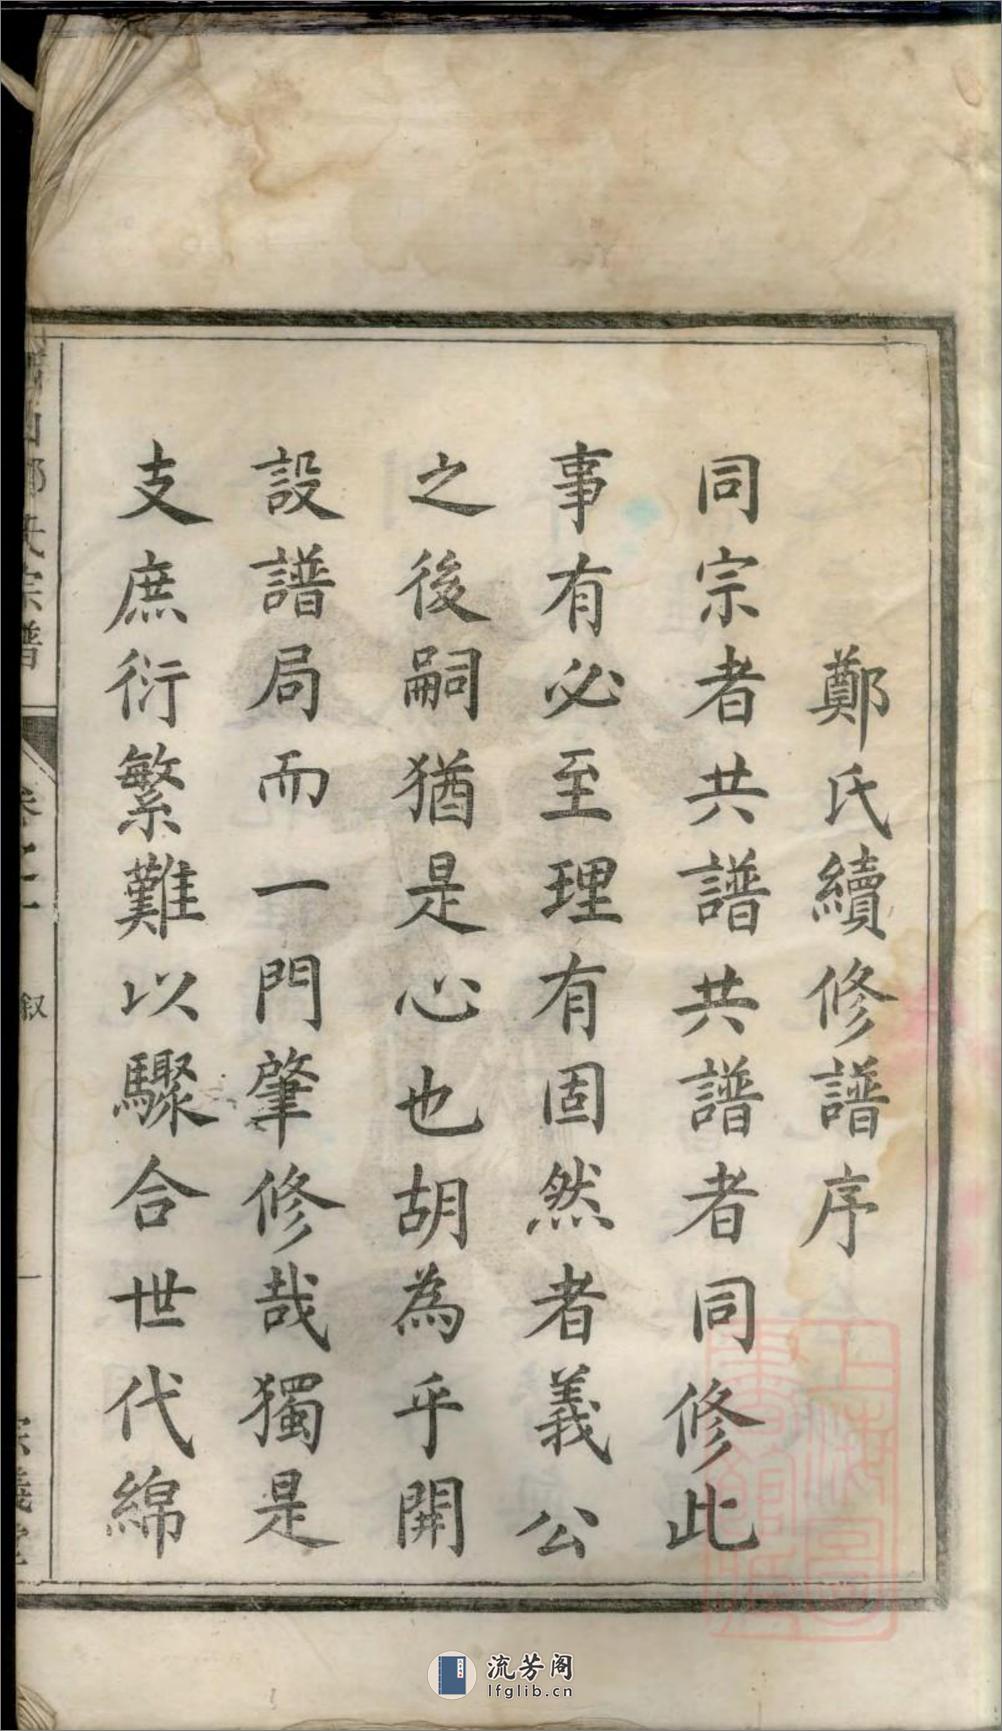 鄭氏續修譜序
同宗者共譜共譜者同修此
事有必至理有固然者義公
之後嗣猶是心也胡為乎開
設譜局而一門肇修哉獨是
支庶衍繁難以驟合世代綿
氏宗譜
卷之一
叙
一
流芳阁
lfglib.cn